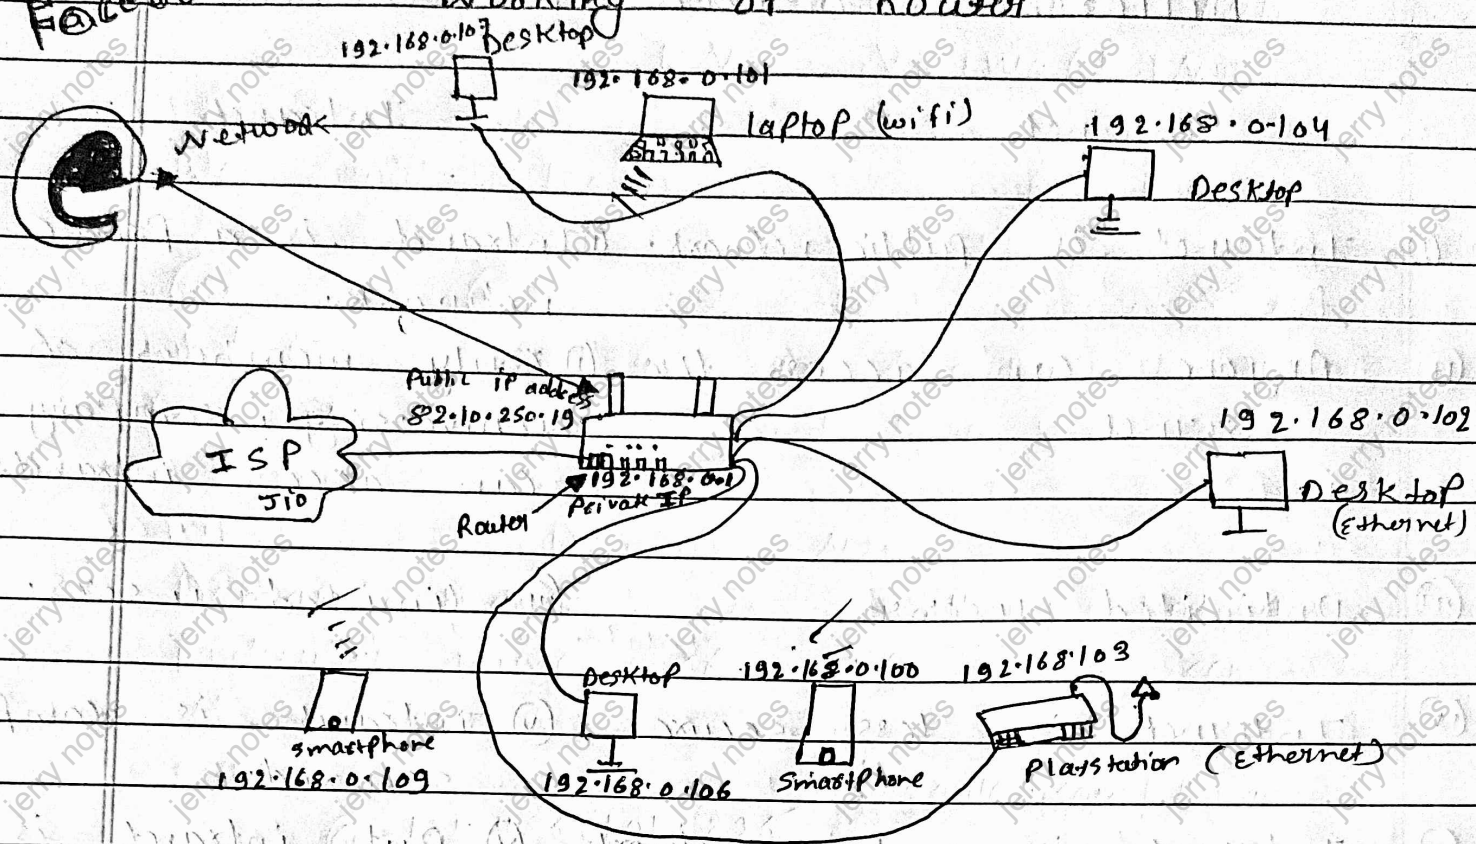 Working of Router
192.168.0.107 Desktop
192.168.0.101
laptop (wifi)
192.168.0.104
Desktop
Network
Public iP address
82.10.250.19
ISP
Jio
192.168.0.1
Private IP
Router
192.168.0.102
Desktop
(Ethernet)
smartphone
192.168.0.109
Desktop
192.168.0.106
192.168.0.100
Smartphone
192.168.103
Playstation (Ethernet)
jerry notes